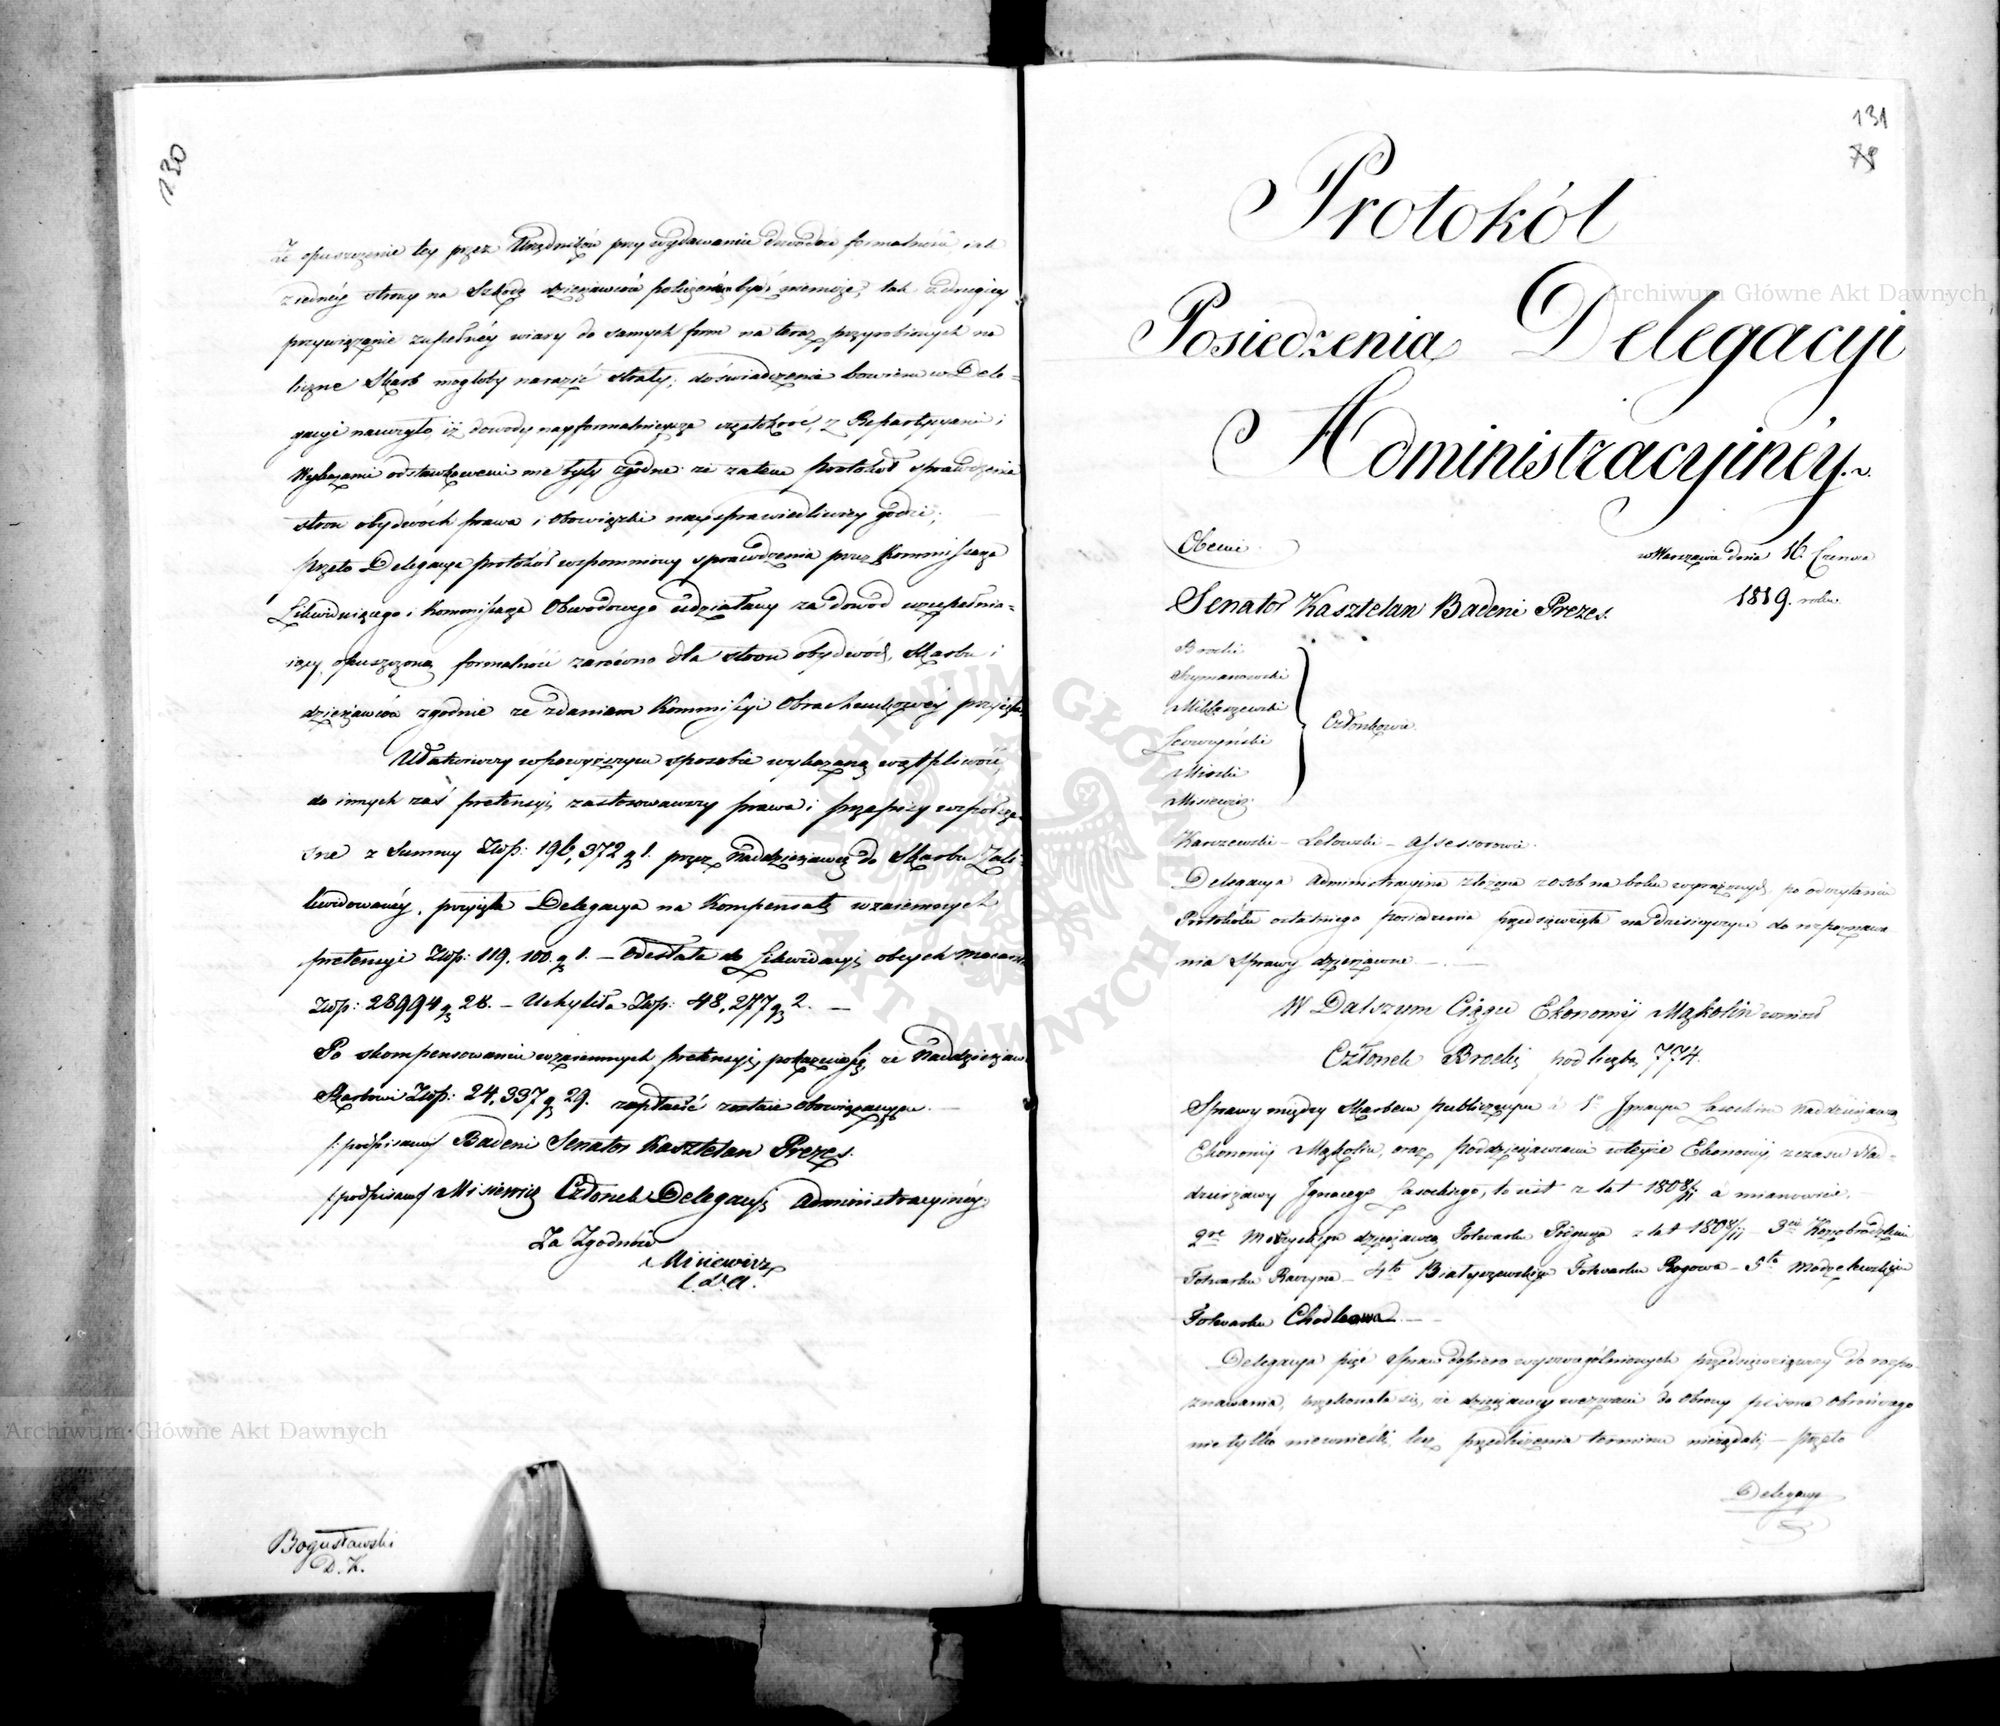 130
Że opuszczenie tey przez Urzędników przy wydawaniu dowodów formalności, iak
z iednéy strony na Szkodę dzierżawców policzoną bydź niemoże, tak z drugiey
przywiązanie zupełnéy wiary do samych form na teraz przyrobionych na
liczne Skarb mogłoby narazić straty; doświadczenie bowiem w Dele-
gacyi nauczyło, iż dowody nayformalnieysze częstokroć, z Repartycyami i
Wykazami odstawkowemi nie były zgodne: że zatem protokół sprawdzenia
stron obydwóch prawa i obowiązki naysprawiedliwiey godzi;
Przeto Delegacya protokół wspomniony sprawdzenia przez Kommissarza
Likwiduiącego i Kommissarza Obwodowego zdziałany za dowód uzupełnia-
iący opuszczoną formalność zarówno dla stron obydwóch, Skarbu i
dzierżawców zgodnie ze zdaniem Kommissyi Obrachunkowéy przyięła.
Ułatwiwszy w powyższym sposobie wykazaną wątpliwość,
do innych zaś pretensyi zastosowawszy prawa i przepisy współcze-
sne z Summy Złp: 196,372 g 1. przez Naddzierżawcę do Skarbu Zali-
kwidowanéy, przyięła Delegacya na Kompensatę wzaiemnych
pretensyi Złp: 119,100. g 1. — Odesłała do Likwidacyi obcych
Złp: 28994 g 28. — Uchyliła Złp: 48,277 g 2. —
Po skompensowaniu wzaiemnych pretensyi, pokazuie się, że Naddzierżaw
Skarbowi Złp: 24,337 g 29. zapłacić zostaie obowiązanym. —
/:podpisano/ Badeni Senator Kasztelan Prezes.
/:podpisano/ Misiewicz Członek Delegacyi Administracyinéy
Za Zgodność
Misiewicz
Bogusławski
D. K.
131
79
Protokół
Posiedzenia Delegacyi
Administracyinéy.
Obecni
w Warszawie dnia 16. Czerwca
Senator Kasztelan Badeni Prezes.
1819. roku
Brocki
Szymanowski
Miklaszewski
Członkowie.
Misiewicz
Karczewski – Letowski – Assessorowie.
Delegacya Administracyina złożona z osób na boku wyrażonych, po odczytaniu
Protokółu ostatniego posiedzenia przedsięwzięła na dzisieyszym do rozpoznawa
nia Sprawy dzierżawne. —
W Dalszym Ciągu Ekonomij Mąkolin wniósł
Członek Brocki pod liczbą 774.
Sprawy między Skarbem publicznym a 1° Ignacym Lasockim Naddzierżawcą
Ekonomij Mąkolin, oraz poddzierżawcami w teyże Ekonomij z czasu Nad-
dzierżawy Ignacego Lasockiego, to iest z lat 1808/11 á mianowicie. —
dzierżawcą Folwarku z lat 1808/11 — 3cie
Folwarku — 4to Folwarku Rogowa — 5to
Folwarku
Delegacya pięć Spraw dopiero wyszczególnionych przedsięwziąwszy do rozpo-
znawania, przekonała się, że dzierżawcy wezwani do Obrony pisma obronnego
nietylko niewnieśli, lecz przedłużenia terminu nieżądali — przeto
Delegacya